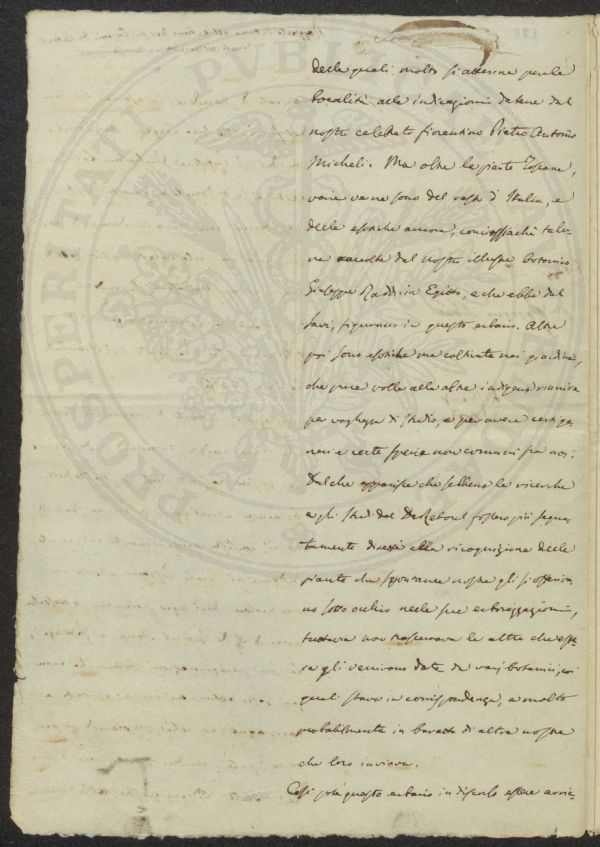 delle quali molto si attenne per la
località alle indicazioni datene dal
nostro celebrato fiorentino Pietro Antonio
Micheli. Ma oltre le piante Toscane,
varie ve ne sono del resto d'Italia, e
delle esotiche ancora, conciossiachè talu-
ne raccolte dal nostro illustre botanico
Giuseppe Raddi in Egitto, e che ebbe dal
Savi, figurano in questo erbario. Altre
poi sono esotiche ma coltivate nei giardini,
che pure volle alle altre indigene riunire
per vaghezza di studio, e per avere certi ge-
neri e certe specie non comuni fra noi:
Dal che apparisce che sebbene le ricerche
e gli studi del De Reboul fossero più segna-
tamente diretti alla ricognizione delle
piante che spontanee nostre gli si offriva-
no sotto occhio nelle sue erborizzazioni,
tuttavia non trascurava le altre che
gli venivano date da vari botanici, coi
quali stava in corrispondenza, e molto
probabilmente in baratto di altre nostre
che loro inviava.
Così potè questo erbario in discorso essere arric-
PROSPERITATI PUBLI